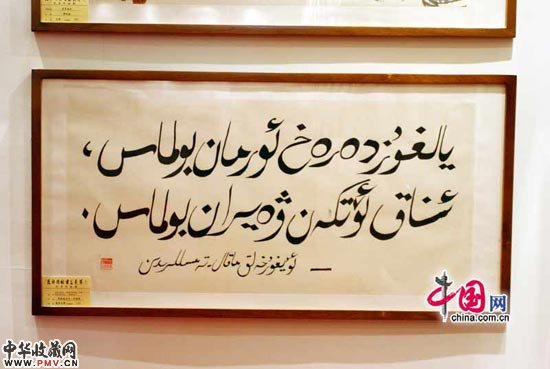 يالغۇز دەرەخ ئورمان بولماس،
ئىناق ئۆتكەن ۋەيران بولماس.
— ئۇيغۇر خەلق ماقال - تەمسىللىرىدىن
中国网
china.com.cn
中华收藏网
WWW.PMV.CN